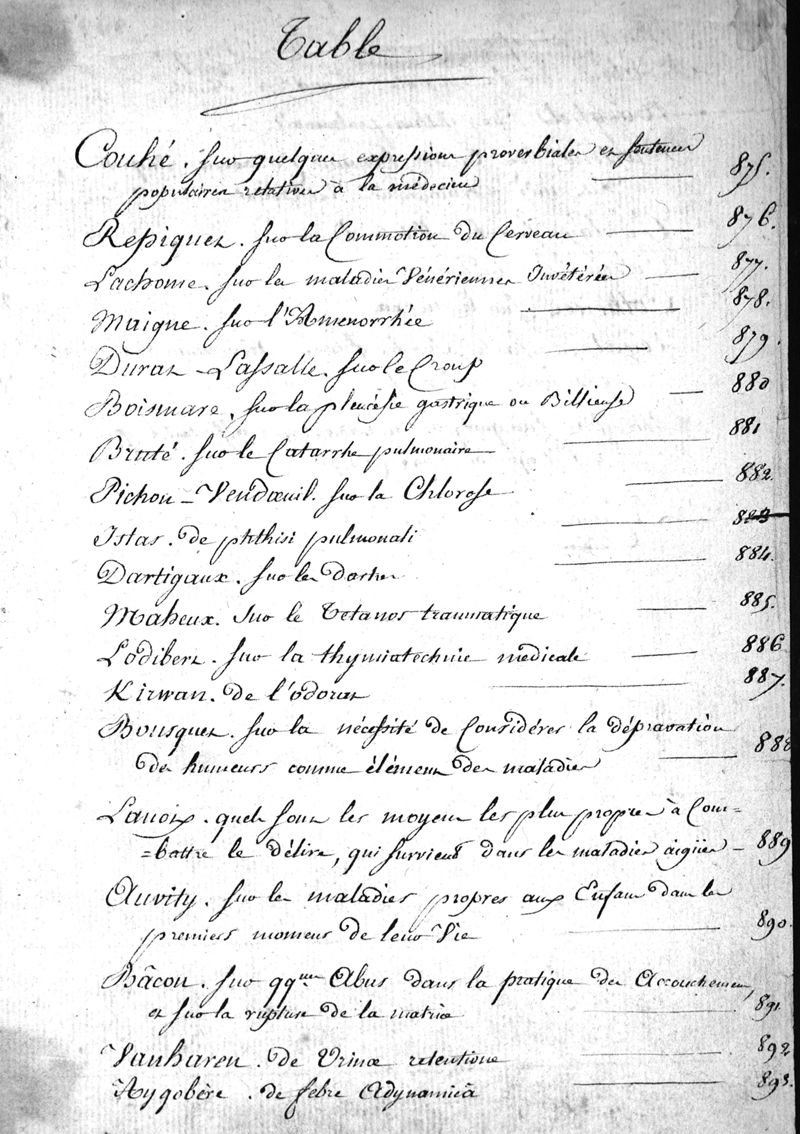 Table
Couhé. sur quelques expressions proverbiales et sentences
populaires relatives à la médecine 875.
Repiquet. sur la Commotion du Cerveau 876.
Lachome. sur les maladies Vénériennes Invétérées 877.
Maigne. sur l'Amenorrhée 878.
Durat-Lassalle. sur le Croup 879.
Boismare. sur la pleurésie gastrique ou Billieuse 880
Bruté. sur le Catarrhe pulmonaire 881
Pichon-Vendœuil. sur la Chlorose 882.
Istas. de phthisi pulmonali 883
Dartigaux. sur les dartres 884.
Maheux. sur le Tetanos traumatique 885.
Lodibert. sur la thymiatechnie médicale 886
Kirwan. de l'odorat 887.
Bousquet. sur la nécessité de Considérer la dépravation
des humeurs comme élément des maladies 888
Lanoix. quels sont les moyens les plus propres à Com=
=battre le délire, qui survient dans les maladies aigües 889
Auvity. sur les maladies propres aux Enfans dans les
premiers momens de leur Vie 890.
Bâcon. sur qques Abus dans la pratique des Accouchemens,
et sur la rupture de la matrice 891
Vanharen. de Urinæ retentione 892
Aygobère. de febre Adynamicâ 893.